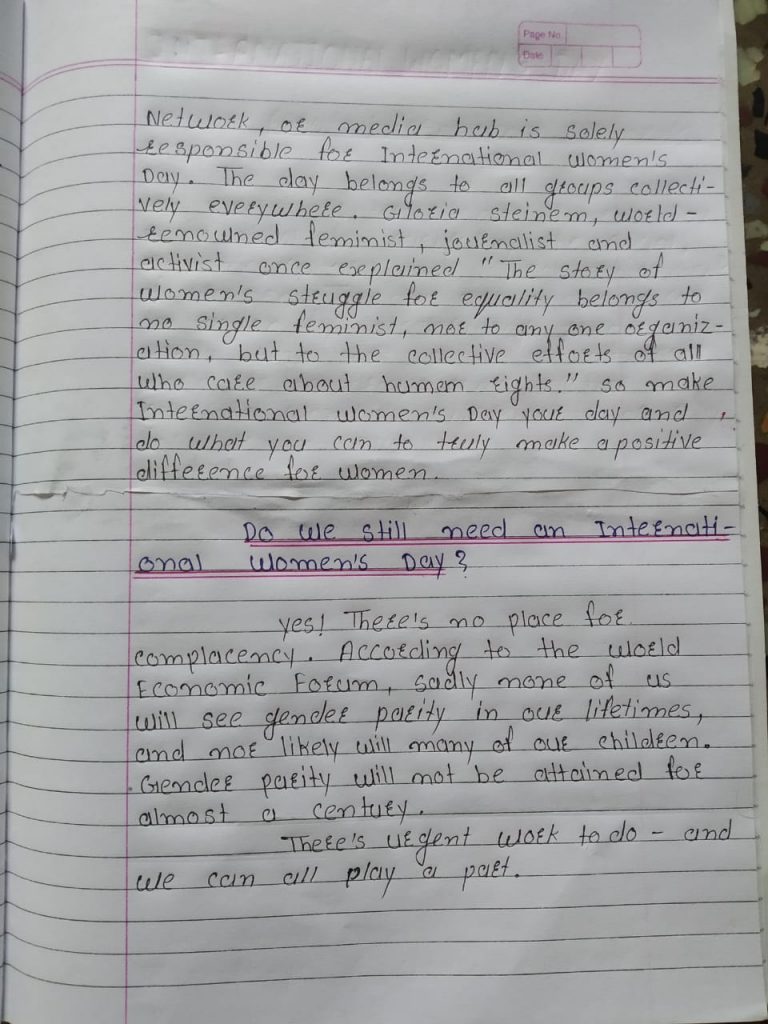 Page No.
Date
Network, or media hub is solely
responsible for International women's
Day. The day belongs to all groups collecti-
vely everywhere. Gloria steinem, world-
renowned feminist, journalist and
activist once explained "The story of
women's struggle for equality belongs to
no single feminist, nor to any one organiz-
ation, but to the collective efforts of all
who care about human rights." so make
International women's Day your day and
do what you can to truly make a positive
difference for women.
Do we still need an Internati-
onal Women's Day?
yes! There's no place for
complacency. According to the world
Economic Forum, sadly none of us
will see gender parity in our lifetimes,
and nor likely will many of our children.
Gender parity will not be attained for
almost a century.
There's urgent work to do - and
we can all play a part.